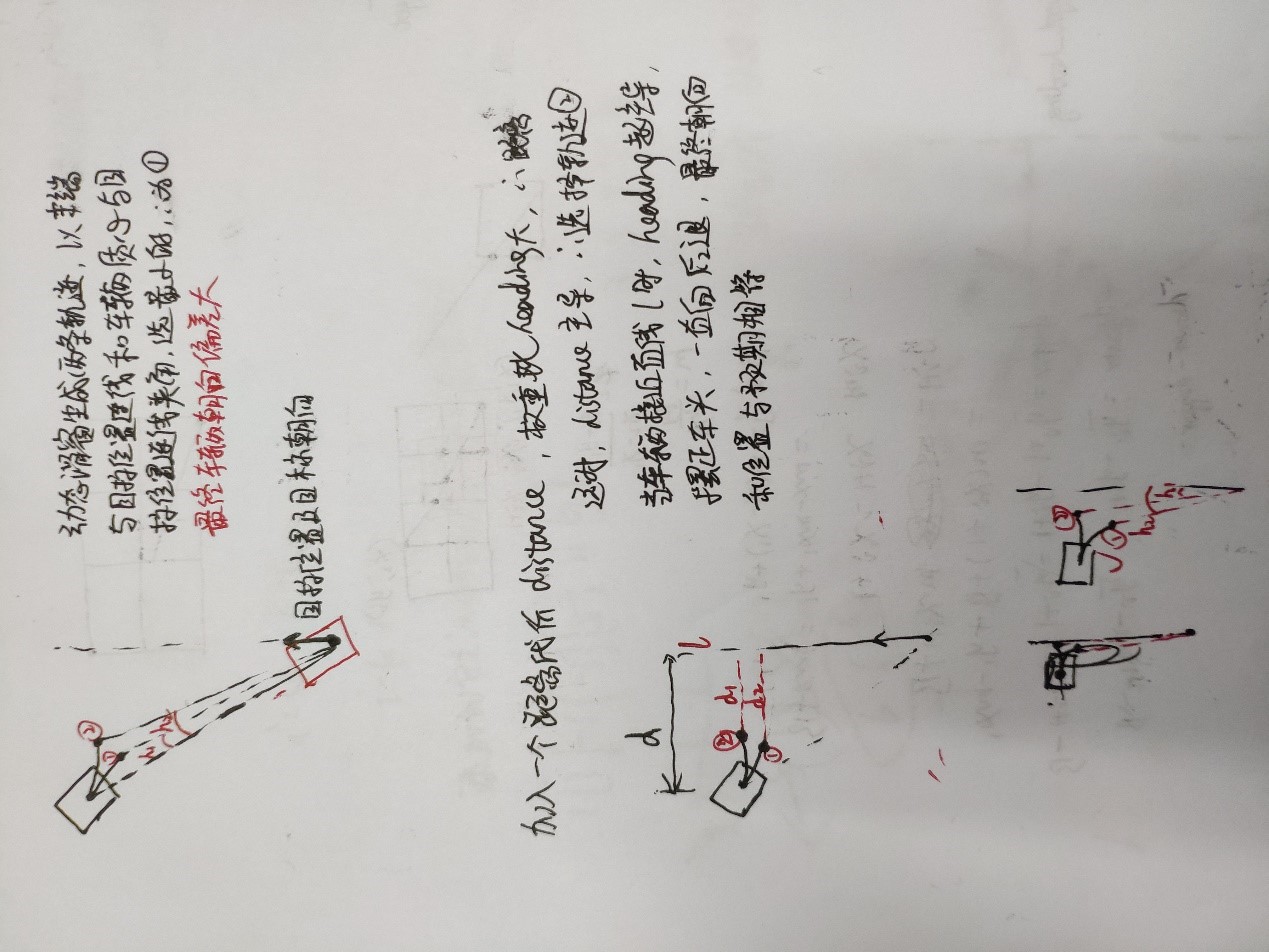 ②
①
h₁
h₂
动态滑窗生成两条轨迹，以末端
与目标位置连线和车辆质心与目
标位置连线夹角，选最小的，∴为①
最终车辆朝向偏差大
目标位置及目标朝向
加入一个距离代价 distance，权重就 heading大，∴距离
远时，distance主导，∴选择轨迹②
当车辆接近直线 l 时，heading起主导，
摆正车头，一直向后退，最终朝向
和位置与预期相符
d
l
②
d₁
d₂
①
②
①
h₂
h₁